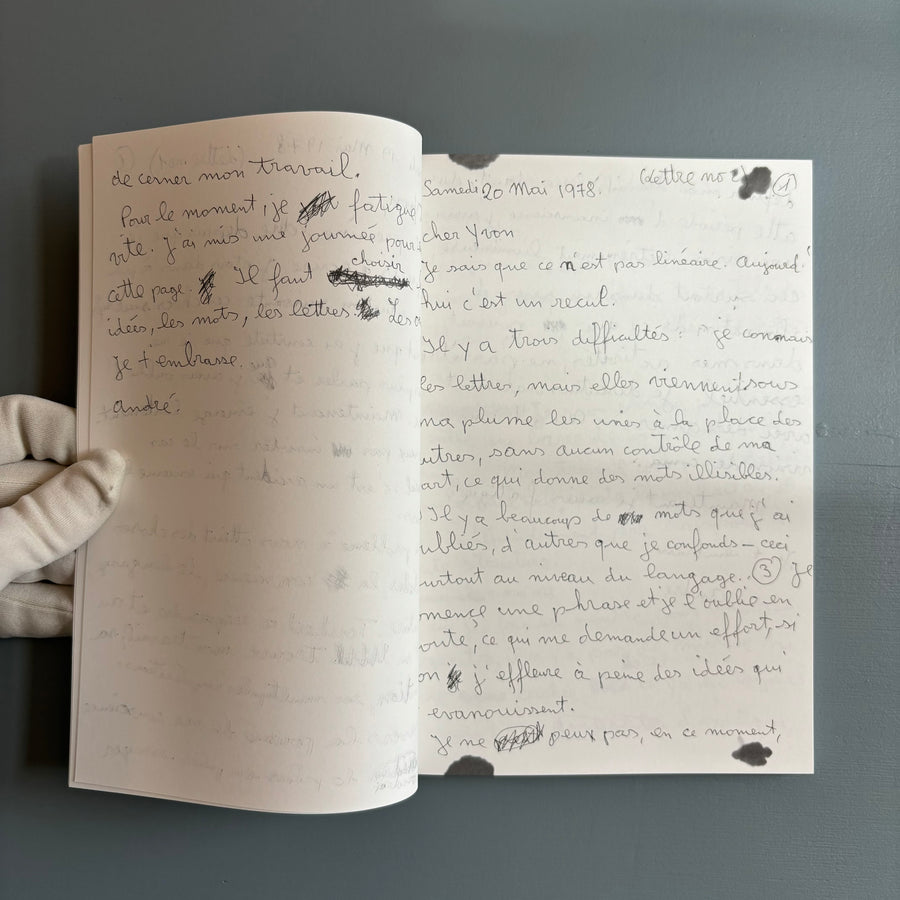 de cerner mon travail.
Pour le moment, je fatigue
vite. j'ai mis une journée pour
choisir
cette page. Il faut
idées, les mots, les lettres. Les
je t'embrasse.
andré.
(lettre no 2) 1
Samedi 20 Mai 1978.
cher Yvon
Je sais que ce n'est pas linéaire. Aujourd'
hui c'est un recul.
Il y a trois difficultés : je connais
les lettres, mais elles viennent sous
ma plume les unes à la place des
utres, sans aucun contrôle de ma
art, ce qui donne des mots illisibles.
Il y a beaucoup de mots que j'ai
ubliés, d'autres que je confonds — ceci
urtout au niveau du langage.. 3 Je
mence une phrase et je l'oublie en
oute, ce qui me demande un effort, si
on j'effleure à peine des idées qui
evanouissent.
Je ne peux pas, en ce moment,